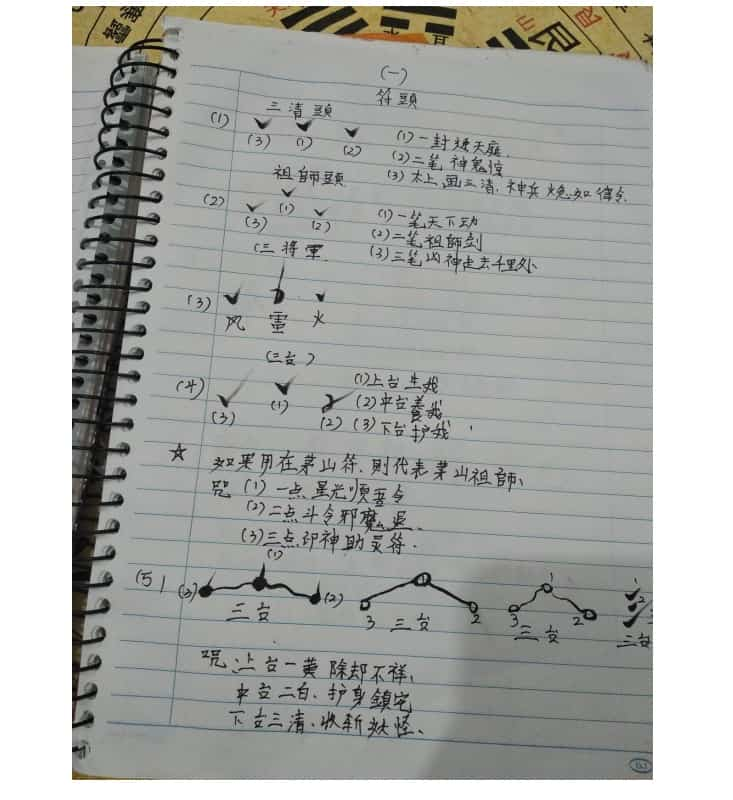 (一)
符頭
(1) 三清頭
(3) (1) (2)
(1) 一封燒天庭.
(2) 二笔神鬼惊
(3) 太上画三清.神兵火急如律令.
(2) 祖師頭
(3) (1) (2)
(1) 一笔天下动
(2) 二笔祖師剑
(3) 三笔凶神走去千里外
(三將軍
(3)
风 雷 火
(三台)
(4)
(3) (1) (2)
(1) 上台生我
(2) 中台養我
(3) 下台护我
☆ 如果用在茅山符.則代表茅山祖師、
咒 (1) 一点星光順吾令
(2) 二点斗令邪魔退、
(3) 三点印神助灵符.
(5) (3) (1) (2)
三台
3 1 2
三台
3 1 2
三台
1 2 3
三台
咒:上台一黄 除却不祥,
中台二白、护身鎮宅
下台三清、收斩妖怪、
艮
艮